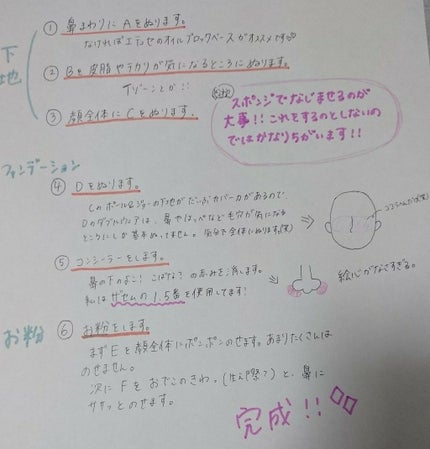 下
地
① 鼻まわりに Aをぬります。
なければエテュセのオイルブロックベースがオススメです
② Bを皮脂やテカリが気になるところにぬります。
Tゾーンとか!!
③ 顔全体に Cをぬります。
スポンジでなじませるのが
大事!!これをするのとしないの
ではかなりちがいます!!
ファンデーション
④ Dをぬります。
Cのポール&ジョーの下地がだいぶカバー力があるので、
Dのダブルウェアは、鼻やほっぺなど毛穴が気になる
ところにしか基本ぬってません。気分で全体にぬります(笑)
ココらへんだけ(笑)
⑤ コンシーラーをします。
鼻の下のよこ!こばな?の赤みを消します。
私は ザセムの1.5番を使用してます!
絵心がなさすぎる。
お粉
⑥ お粉をします。
まずEを顔全体にポンポンのせます。あまりたくさんは
のせません。
次に Fを おでこのきわっ(生え際?)と、鼻に
ササッとのせます。
完成!!